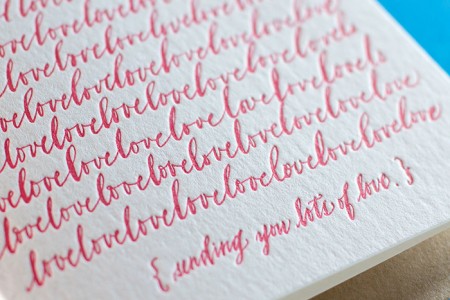 lovelovelove
lovelovelovelove
lovelovelovelovelove
lovelovelovelovelovelove
lovelovelovelovelovelovelove
lovelovelovelovelovelovelovelove
lovelovelovelovelovelovelovelove
lovelovelovelovelovelovelovelovelove
{ sending you lots of love. }